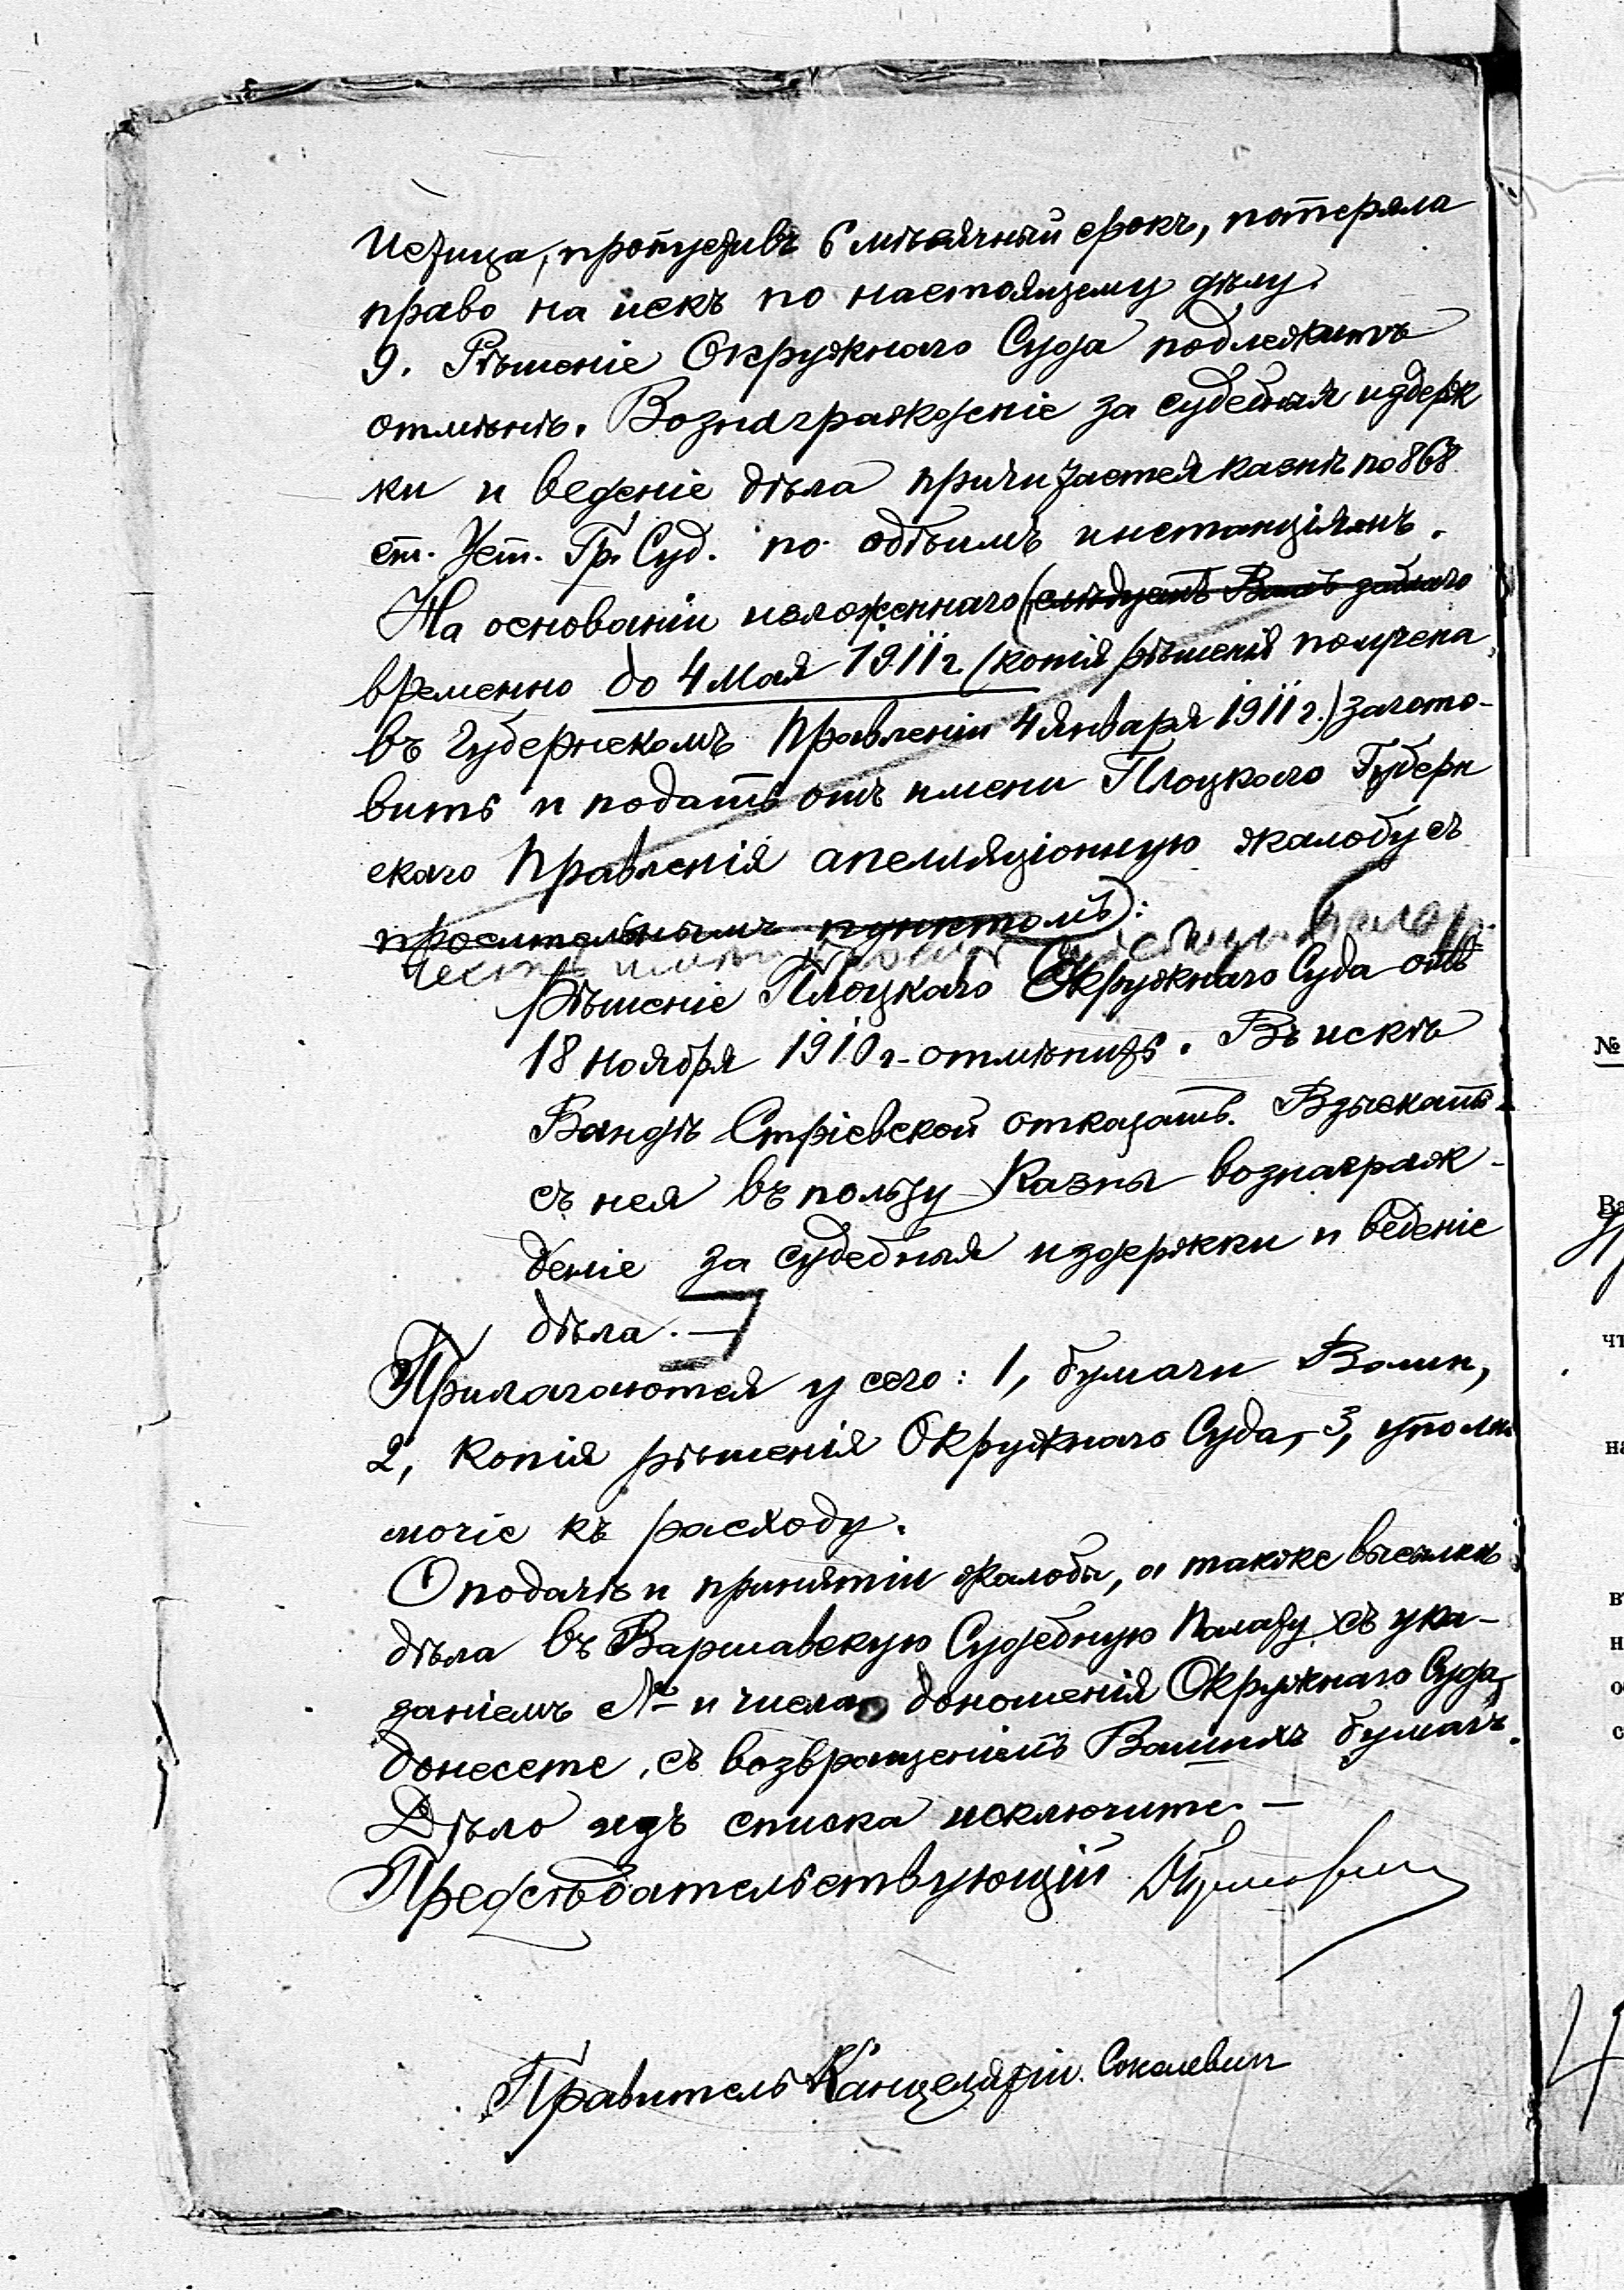 истица, пропустивъ 6 мѣсячный срокъ, потеряла
право на искъ по настоящему дѣлу.
9. Рѣшеніе Окружнаго Суда подлежитъ
отмѣнѣ. Вознагражденіе за судебныя издерж
ки и веденіе дѣла причитается казнѣ по 868
ст. Уст. Гр. Суд. по обѣимъ инстанціямъ.
На основаніи изложеннаго (слѣдуетъ Вамъ заблаго
временно до 4 Мая 1911 г. (копія рѣшенія получена
въ Губернскомъ Правленіи 4 Января 1911 г.) загото-
вить и подать отъ имени Плоцкаго Губерн
скаго Правленія апелляціонную жалобу съ
просительнымъ пунктомъ):
честь имѣю просить Судебную Палату
Рѣшеніе Плоцкаго Окружнаго Суда отъ
18 Ноября 1910 г. отмѣнить. Въ искѣ
Вандѣ Стріевской отказать. Взыскать
съ нея въ пользу Казны вознаграж-
деніе за судебныя издержки и веденіе
дѣла. —
Прилагаются у сего: 1, бумаги Ваши,
2, копія рѣшенія Окружнаго Суда, 3, уполно
мочіе къ расходу.
О подачѣ и принятіи жалобы, а также высылкѣ
дѣла въ Варшавскую Судебную Палату съ ука-
заніемъ № и числа доношенія Окружнаго Суда,
донесете, съ возвращеніемъ Вашихъ бумагъ.
Дѣло изъ списка исключите. —
Предсѣдательствующій
Правитель Канцеляріи
№